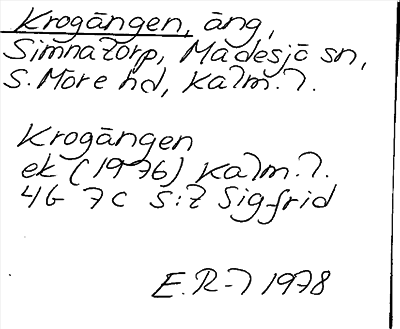 Krogången, äng,
Simnatorp, Madesjö sn,
S. Möre hd, Kalm. l.
Krogången
ek (1976) Kalm. l.
4G 7c S:t Sigfrid
E.R-l 1978